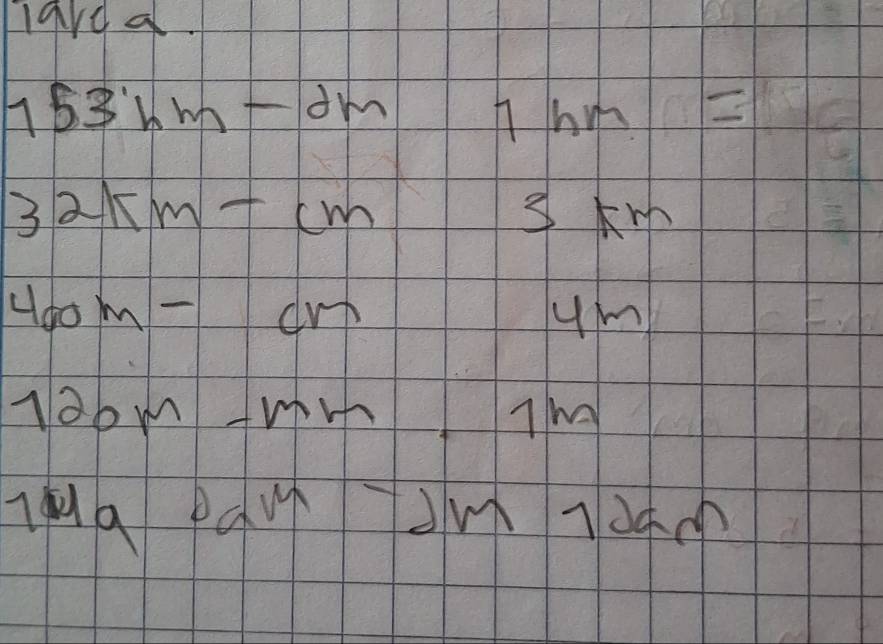 Tarea.
153 hm - dm 1 hm =
32 Km - cm 3 km
400 m - cm 4 m
120 m - mm 1 m
dam - dm 1 dam